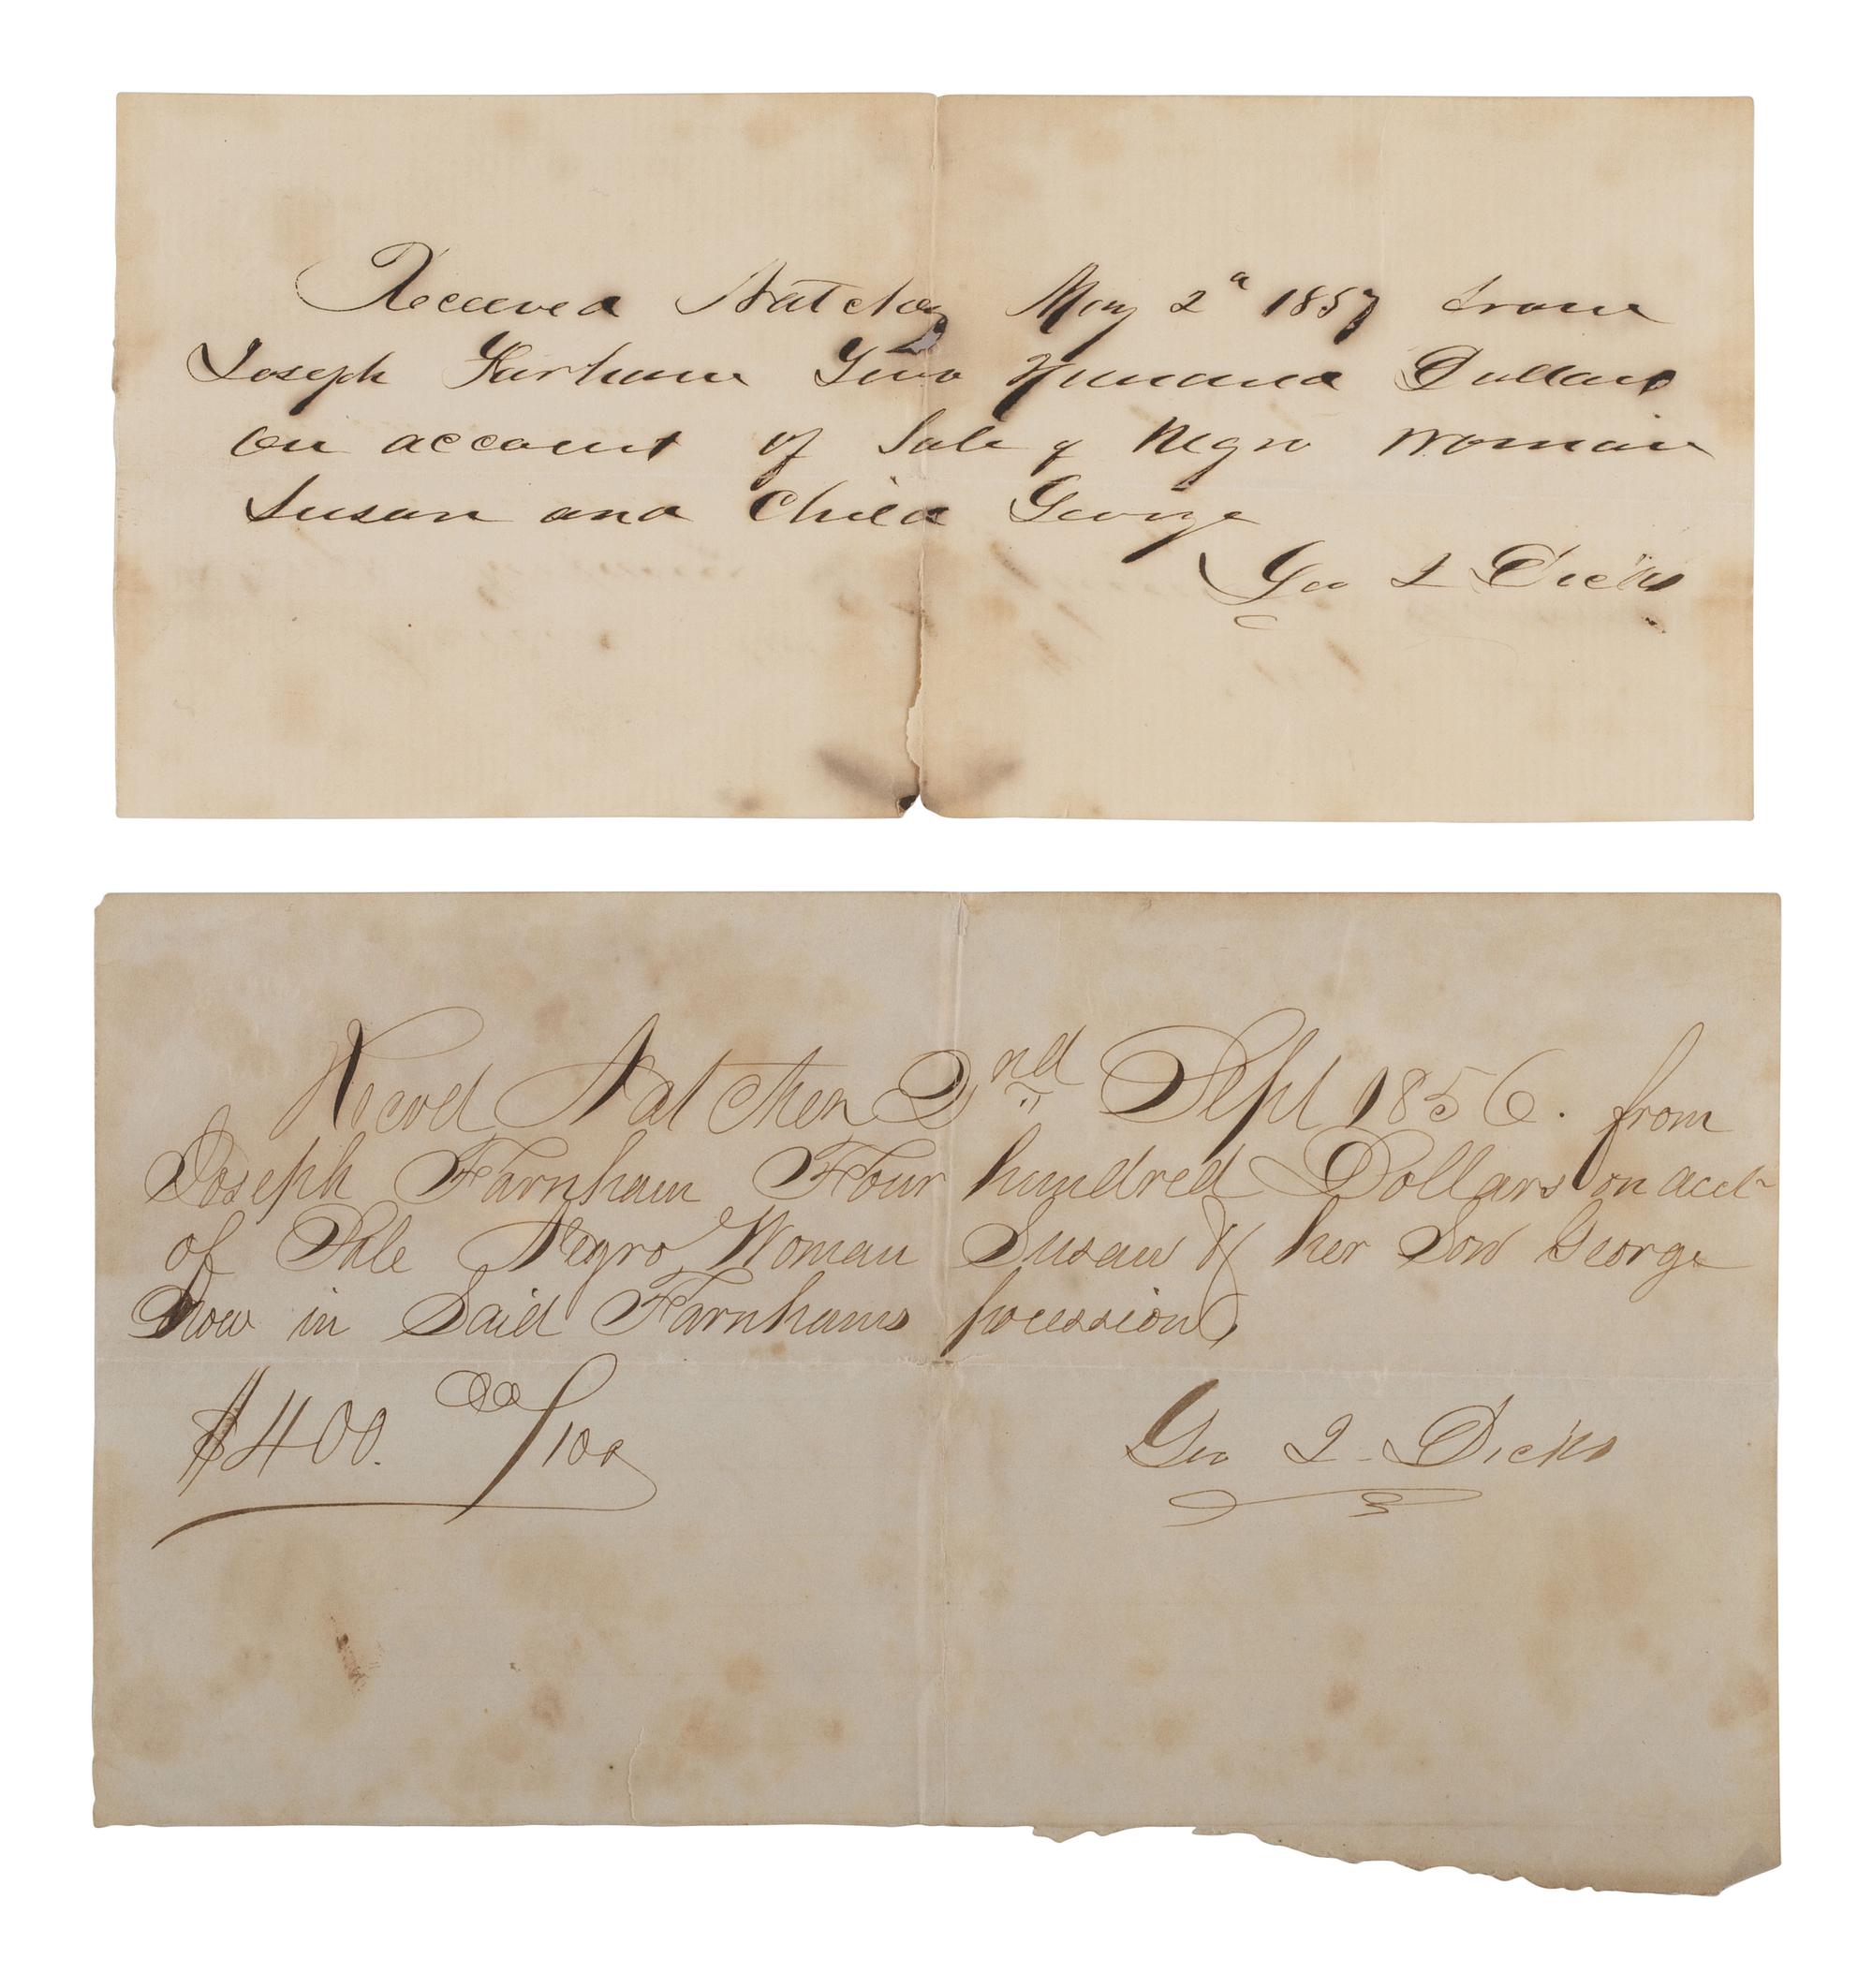 Received Natchez May 2d 1857 from
Joseph Farnham Two Hundred Dollars
on account of Sale of Negro Woman
Susan and Child George
Geo I Dicks
Recvd Natchez 2nd Sept 1856. from
Joseph Farnham Four hundred Dollars on acct
of Sale Negro Woman Susan & her Son George
Now in Said Farnhams possession,
$400. 00/100
Geo I. Dicks